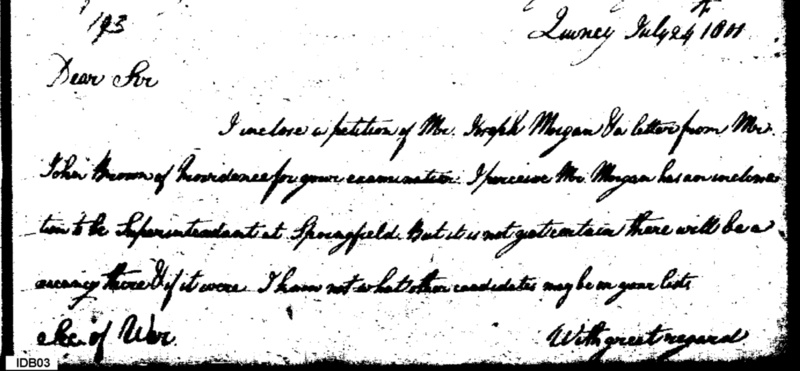 193
Quincy July 24
Dear Sir
I inclose a petition of Mr. Joseph Morgan & a letter from Mr.
John Brown of Providence for your examination. I perceive Mr. Morgan has an inclina
tion to be Superintendant at Springfield. But it is not yet certain there will be a
vacancy there & if it were I know not what other candidates may be on your lists
Sec. of War. With great regard
IDB03